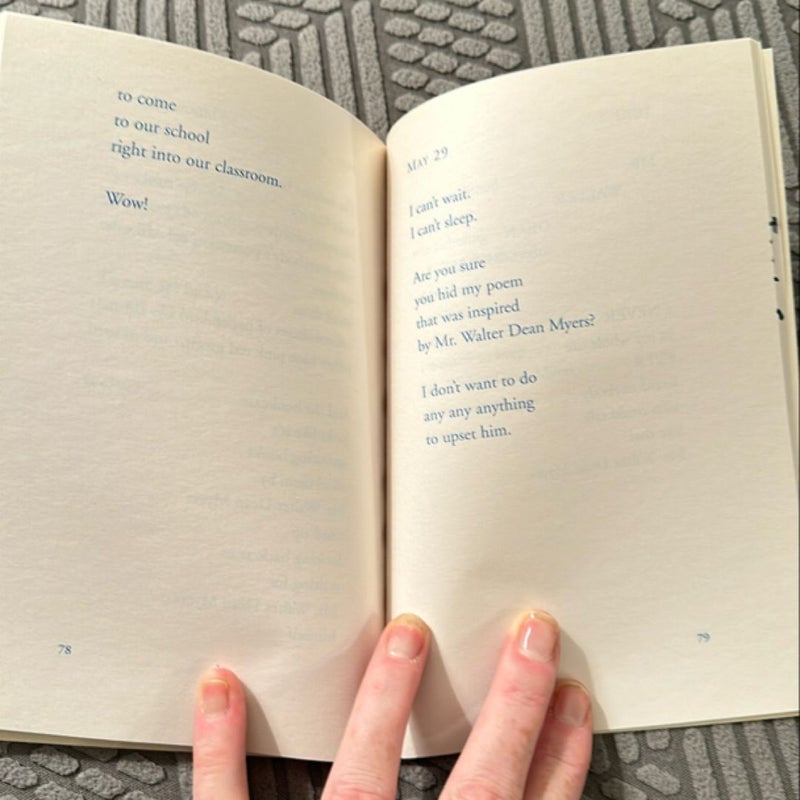 to come
to our school
right into our classroom.
Wow!
78
MAY 29
I can't wait.
I can't sleep.
Are you sure
you hid my poem
that was inspired
by Mr. Walter Dean Myers?
I don't want to do
any any anything
to upset him.
79